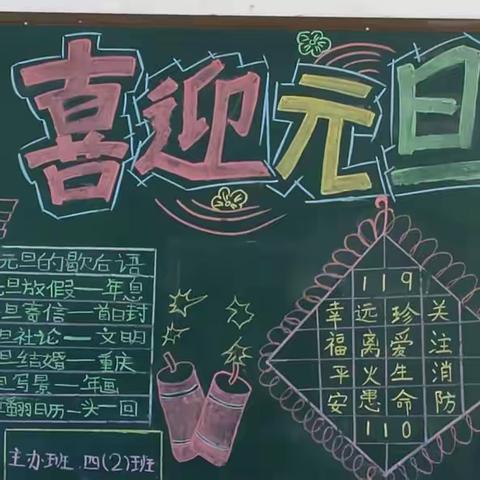 喜迎元旦
元旦的歇后语
元旦放假一年息
旦寄信一首日封
旦社论一文明
旦结婚一重庆
旦写景一年画
翻日历一头一回
主办班.四(2)班
119
幸远珍关
福离爱注
平火生消
安患命防
110